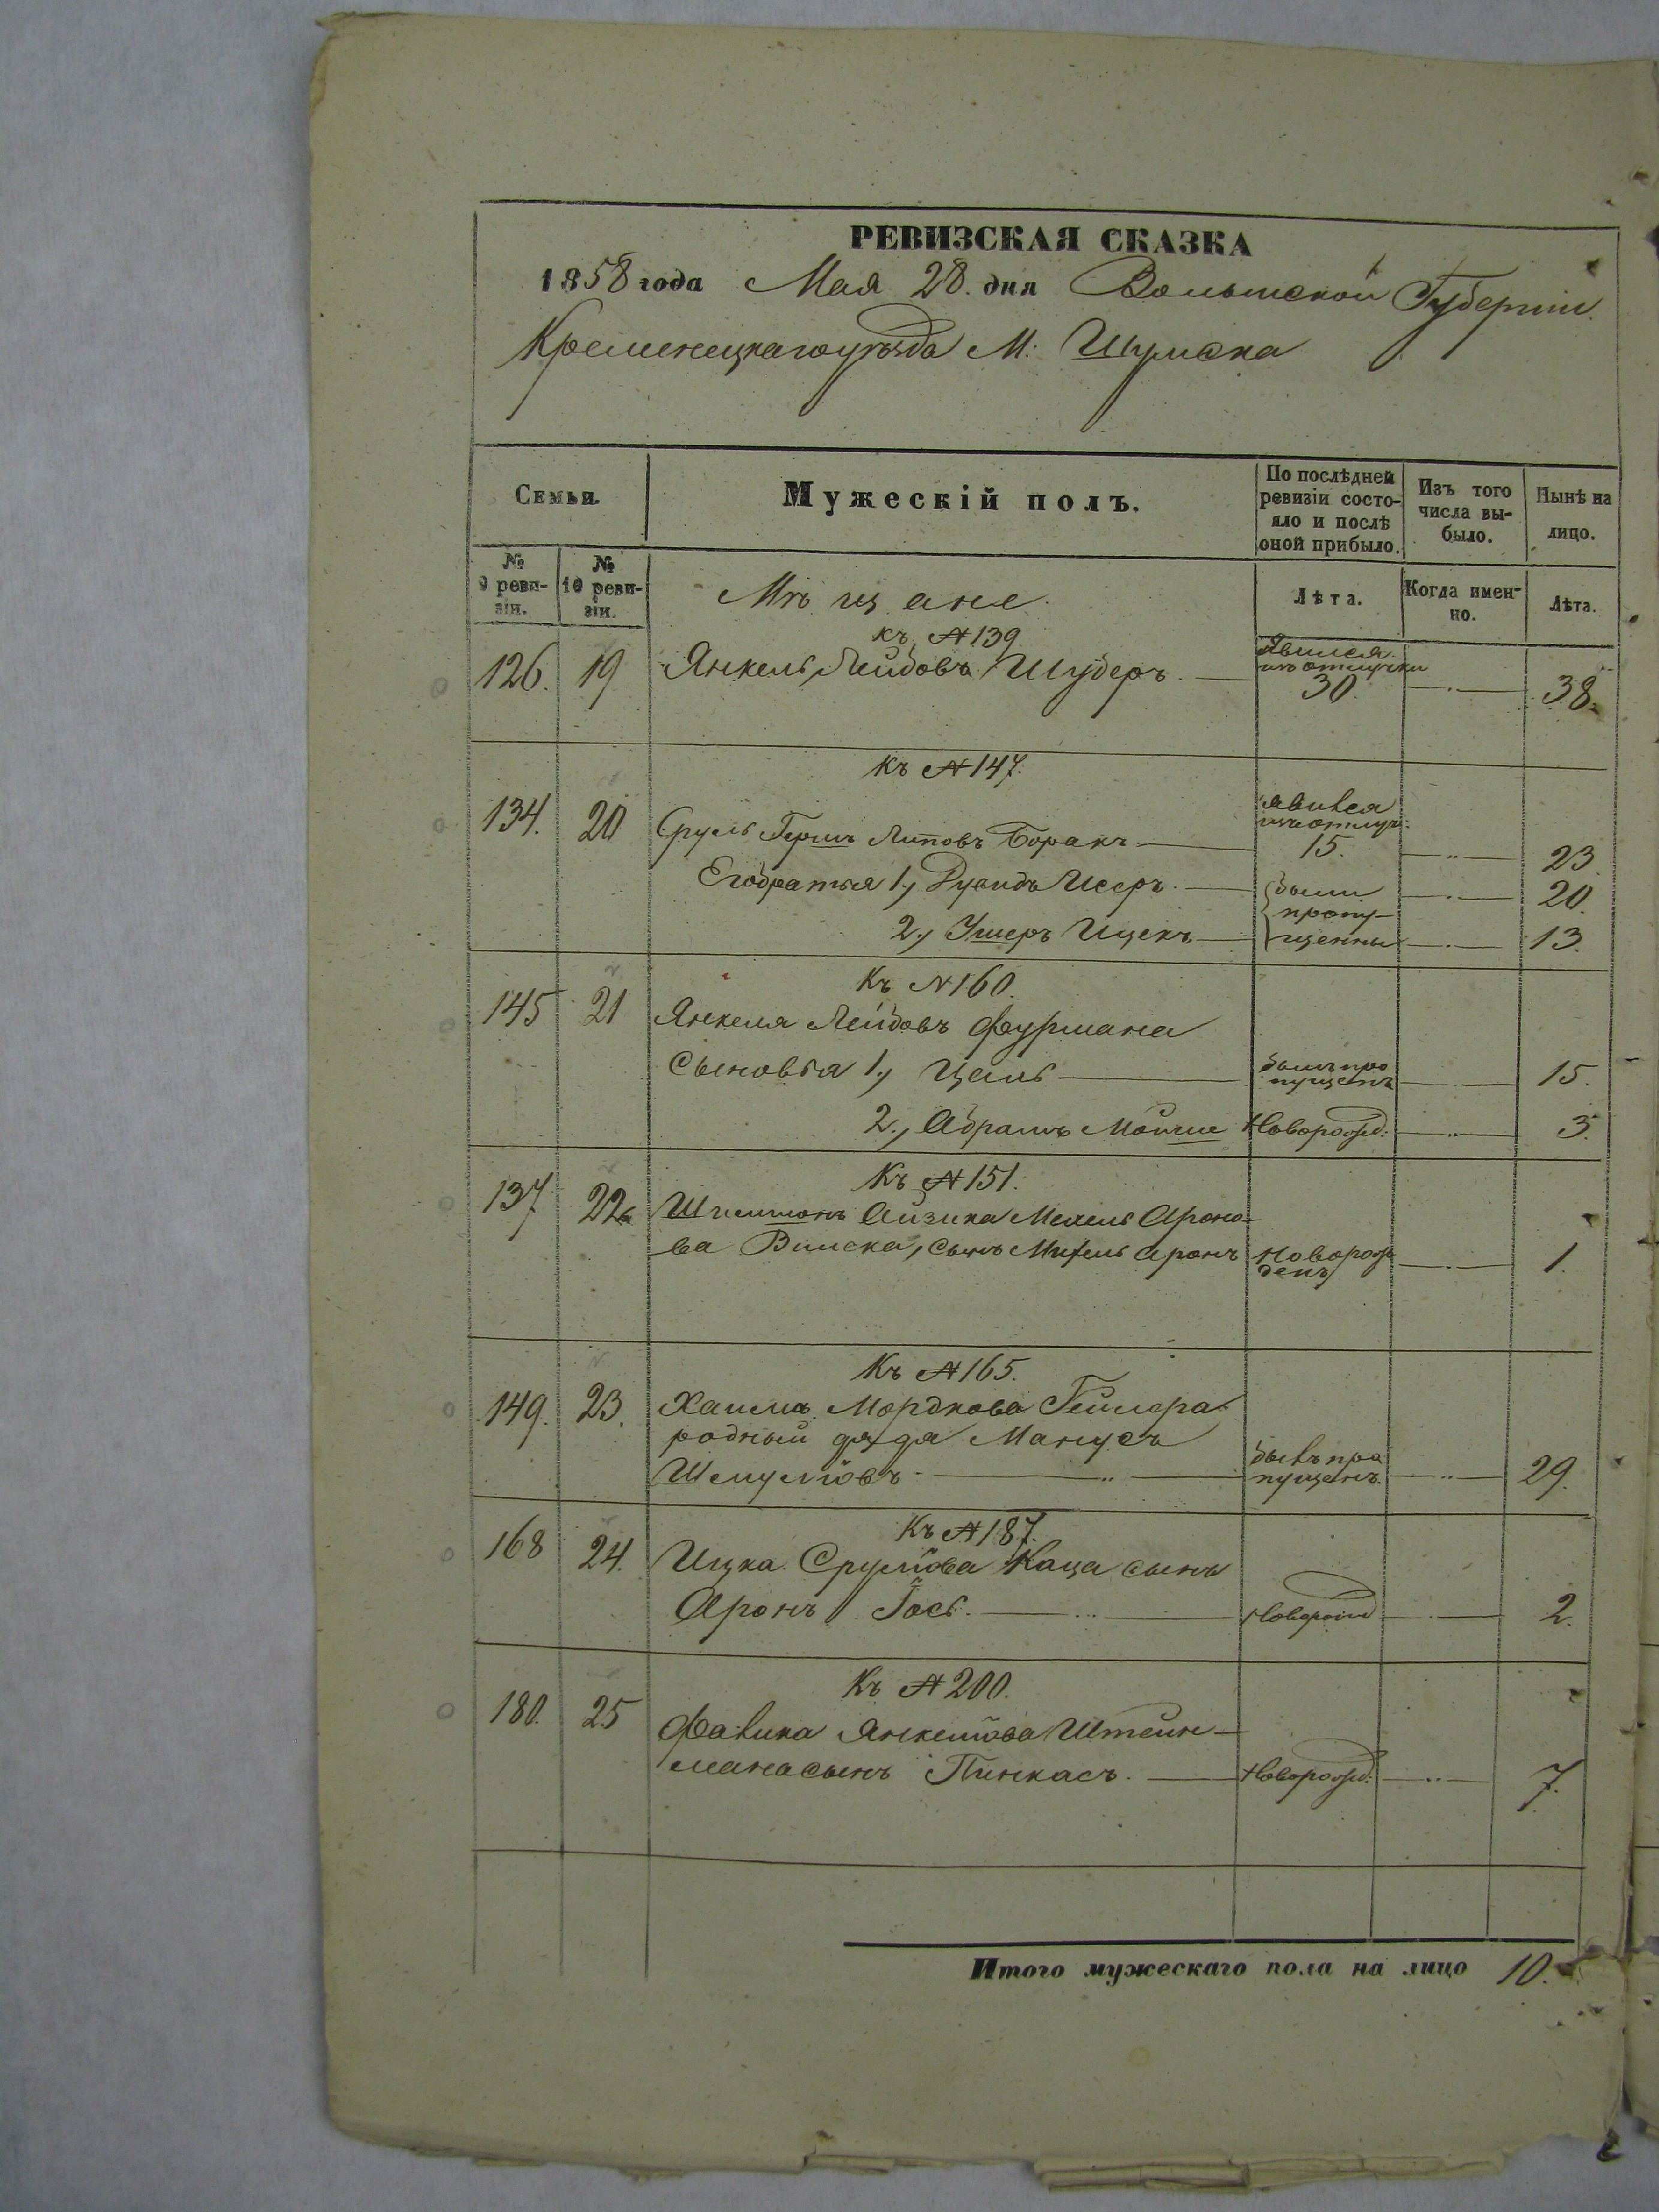 РЕВИЗСКАЯ СКАЗКА
1858 года Мая 28. дня Волынской Губернии
Кременецкаго уѣзда М: Шумска
Семьи.
Мужескій полъ.
По послѣдней ревизіи состояло и послѣ оной прибыло.
Изъ того числа выбыло.
Нынѣ на лицо.
№ 9 ревизіи.
№ 10 ревизіи.
Мѣщане.
Лѣта.
Когда именно.
Лѣта.
къ № 139
126. 19 Янкель Лейбовъ Шуберъ. Явился изъ отлучки 30. 38.
Къ № 147.
134. 20 Сруль Гершъ Липовъ Боракъ явился изъ отлуч: 15. 23.
Его братья 1., Иссръ. были 20.
пропу-
2., Ушеръ Ицекъ щенны 13.
Къ № 160.
145 21 Янкеля Лейбовъ Фурмана
Сыновья 1., Цаль былъ про пущенъ 15.
2., Абрамъ Мойше Новорожд: 3.
Къ № 151.
137 22. Айзика Мехель Ароно-
ва сынъ Михель Аронъ Новорож денъ 1.
Къ № 165.
149. 23. Хаима Мордкова
родный дядя Манусъ
Шмулiовъ былъ про пущенъ. 29.
Къ № 187.
168 24. Ицка Срулiова Каца сынъ
Аронъ Iось. Новорожд 2.
Къ № 200.
180. 25 Фавика Янкелiова Штейн-
мана сынъ Пинкасъ. Новорожд: 7.
Итого мужескаго пола на лицо 10.